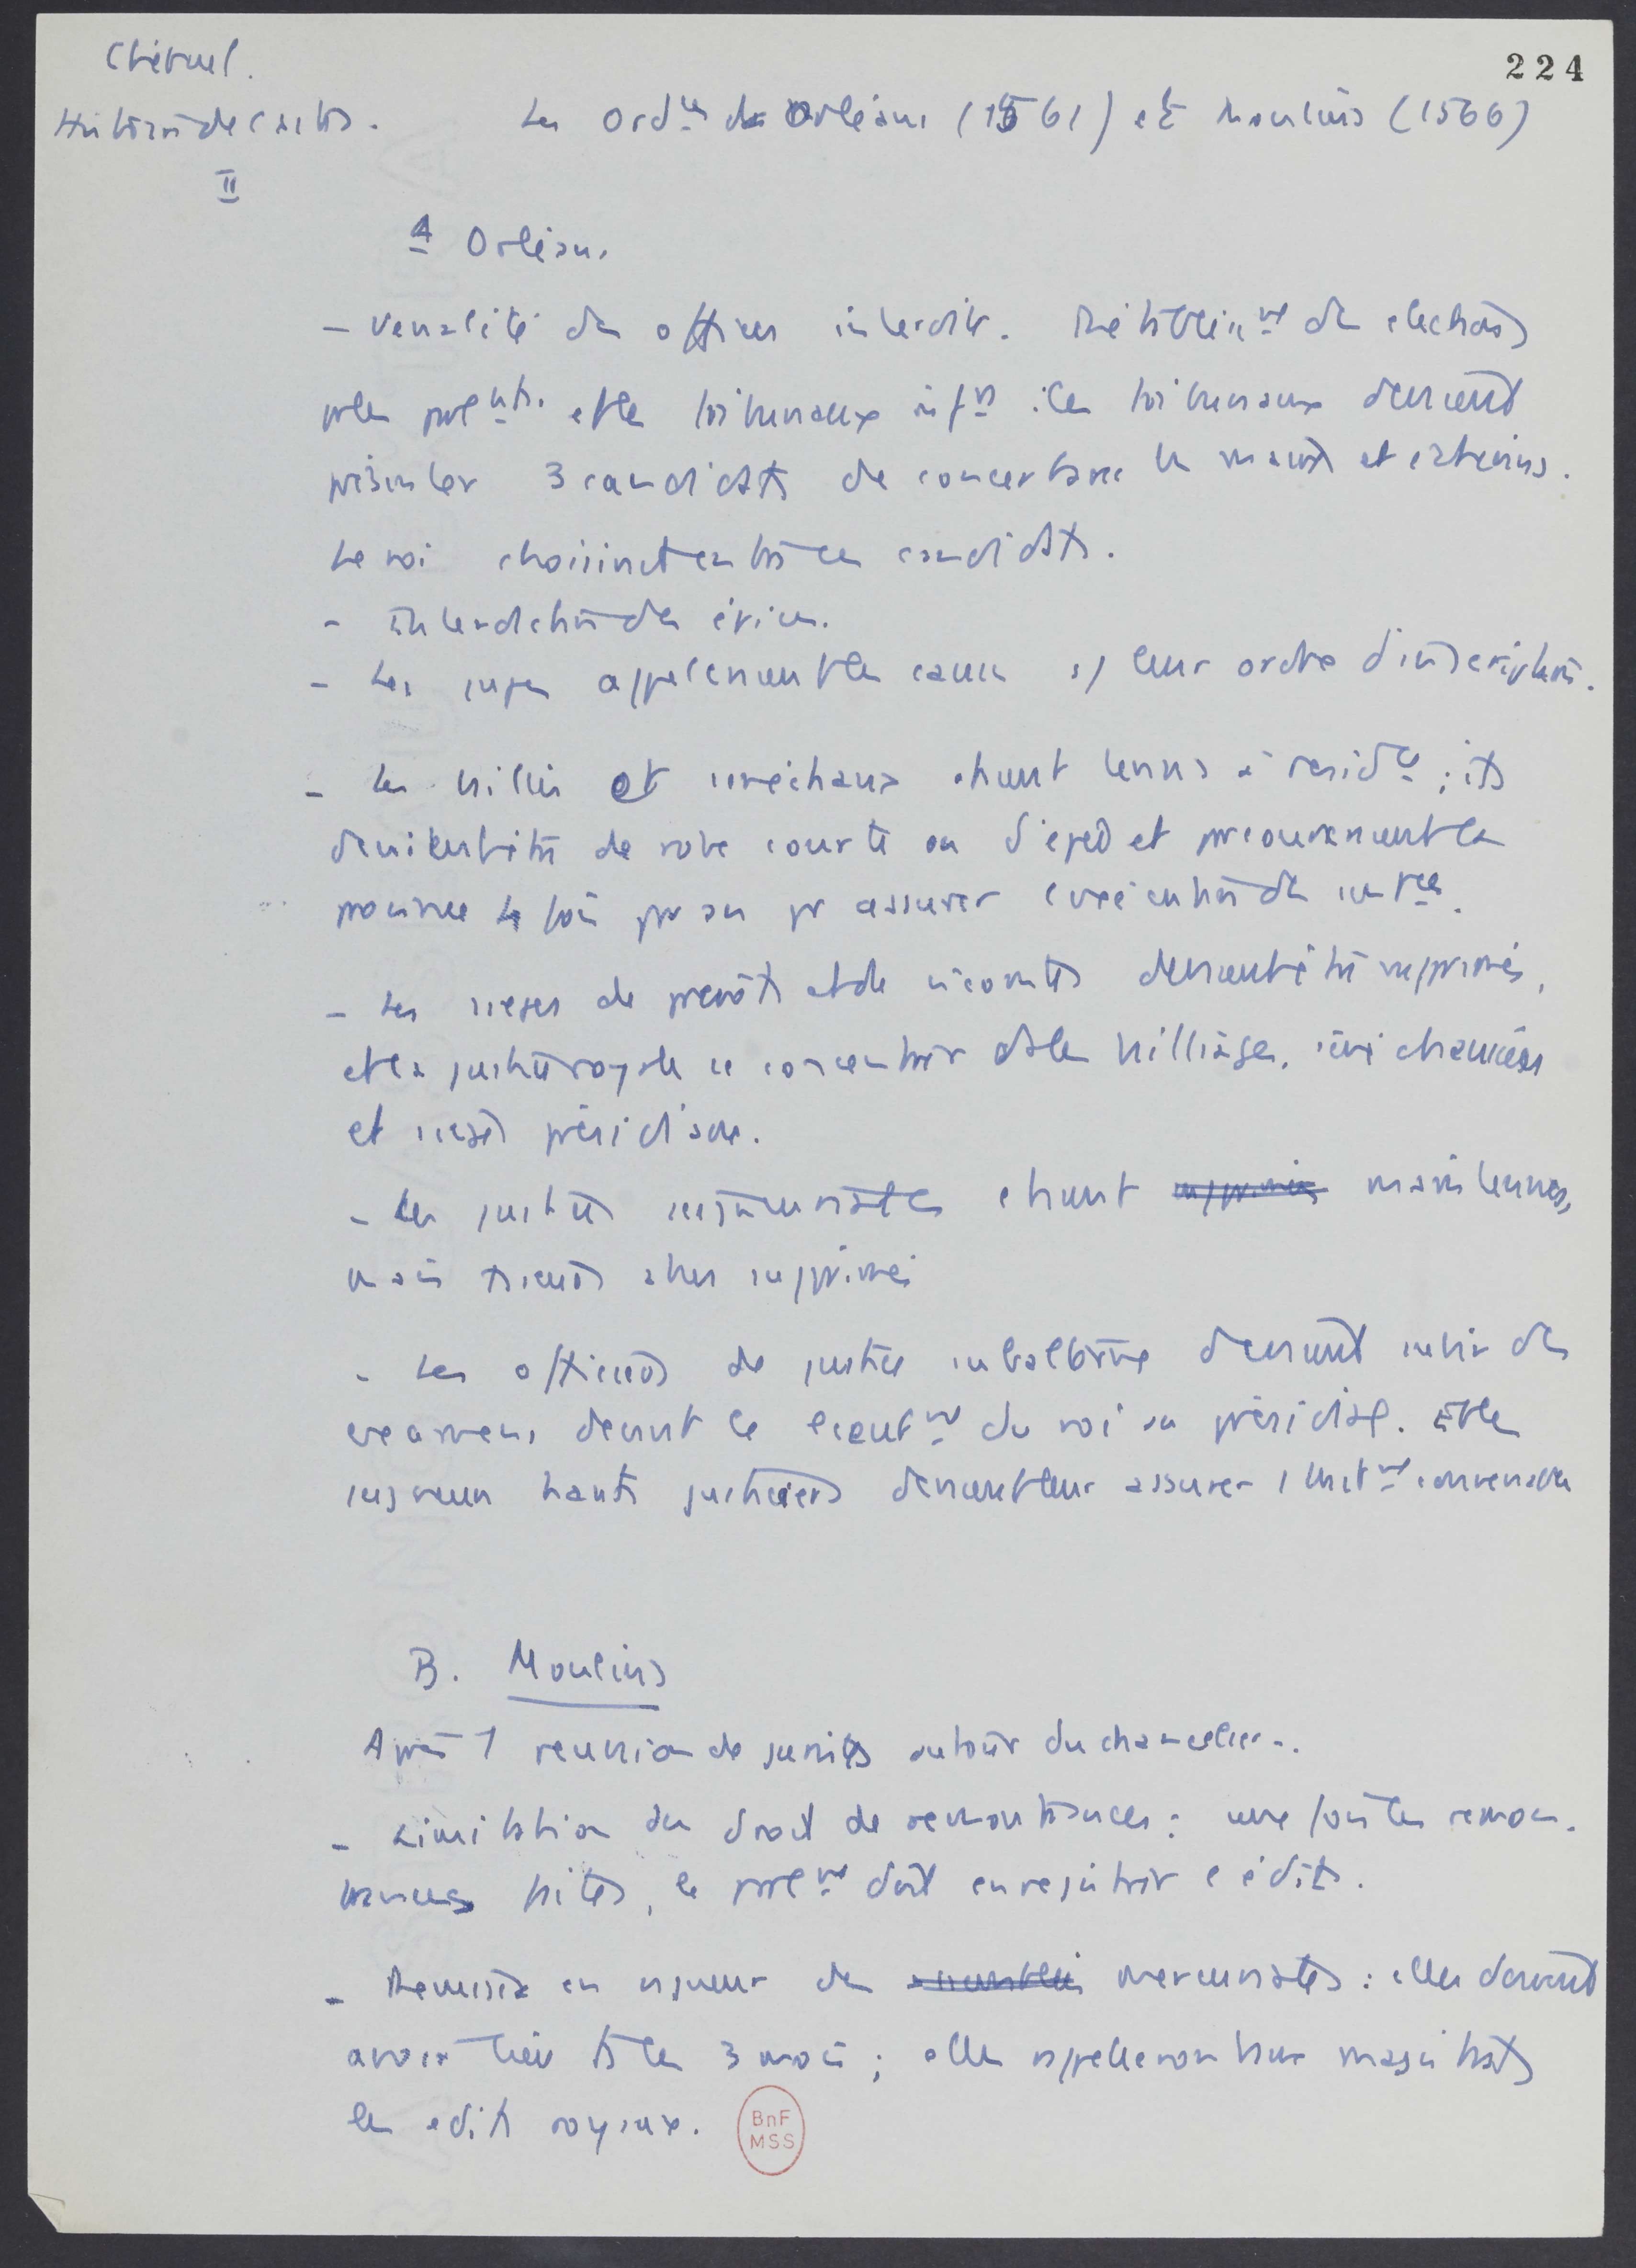 Chéruel.
224
Histoire de l'adm.
Les Ordces de Orléans (1561) et Moulins (1566)
II
A Orléans
– Venalité des offices interdite. Rétablissmt des elections
pr les parlnts. et les tribunaux infrs : les tribunaux devront
présenter 3 candidats de concert avec les maires et echevins.
Le roi choisira entre ces candidats.
– Interdiction des épices.
– Les juges appelleront les causes s/ leur ordre d'inscription.
– Les baillis et sénéchaux seront tenus à residce ; ils
devront être de robe courte ou d'épée et parcoureront la
province 4 fois par an pr assurer l'exécution des sentces.
– Les sieges de prevôts et de vicomtes devront être supprimés,
et la justice royale se concentrer ds les bailliages, sénéchaussées
et sieges présidiaux.
– Les justices seigneuriales seront supprimées maintenues,
mais
– Les officiers de justice subalterne devront subir des
examens devant le lieutnt du roi au présidial. Et les
seigneurs hauts justiciers devront leur assurer 1 traitmt convenable
B. Moulins
Après 1 reunion de juristes autour du chancelier..
– Limitation du droit de remontrances : une fois les remon-
trances faites, le parlmt doit enregistrer l'édit.
– Remise en vigueur des assemblées mercuriales : elles devront
avoir lieu ts les 3 mois ; elles rappelleront aux magistrats
les edits royaux.
BnF
MSS